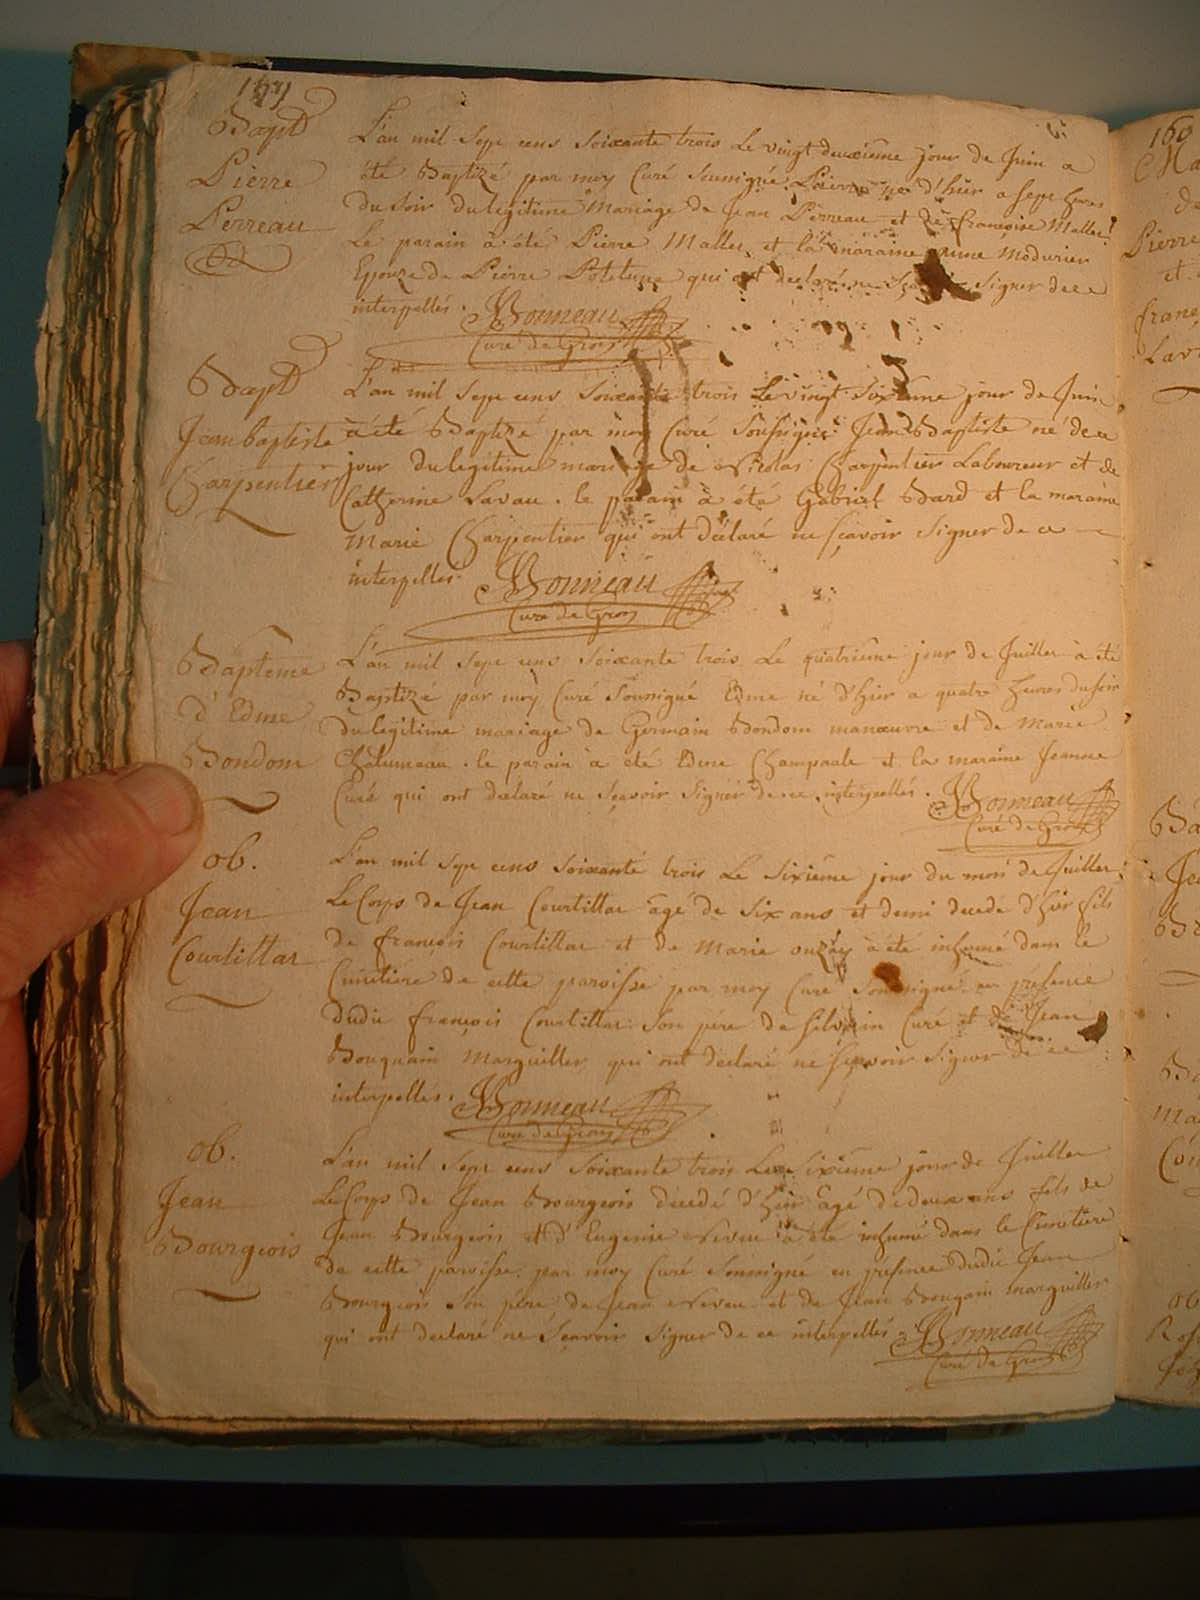 Bapt
Pierre
Perreau
L'an mil sept cens soixante trois le vingt deuxième jour de Juin a
été Baptizé par moy Curé Soussigné Pierre né d'hier a sept heures
du soir du legitime Mariage de Jean Perreau et de françoise Mallet
Le parain à été Pierre Mallet et la maraine
Epouze de Pierre qui ont declaré ne Sçavoir Signer de ce
interpellés. Bonneau
Curé de Gron
Bapt
Jean baptiste
Charpentier
L'an mil sept cens soixante trois le vingt sixième jour de Juin
à été Baptizé par moy Curé Soussigné Jean Baptiste né de ce
jour du legitime mariage de Nicolas Charpentier Laboureur et de
Catherine Lavau. le parain à été Gabriel Bard et la maraine
Marie Charpentier qui ont déclaré ne sçavoir Signer de ce
interpellés. Bonneau
Curé de Gron
Baptême
d'Edme
Bondom
L'an mil sept cens soixante trois Le quatrième jour de Juillet à été
Baptizé par moy Curé Soussigné Edme né d'hier a quatre heures du soir
du legitime mariage de Germain Bondom manœuvre et de Marie
Chalumeau. le parain à été Edme et la maraine Jeanne
Curé qui ont déclaré ne sçavoir Signer de ce interpellés. Bonneau
Curé de Gron
ob.
Jean
Courtillat
L'an mil sept cens soixante trois Le sixième jour du mois de Juillet
Le Corps de Jean Courtillat âgé de six ans et demi decedé d'hier fils
de françois Courtillat et de Marie à été inhumé dans le
Cimetière de cette paroisse par moy Curé Soussigné en présence
dudit françois Courtillat Son père de Silvain Curé et de Jean
Bougain Marguillier qui ont declaré ne sçavoir Signer de ce
interpellés. Bonneau
Curé de Gron
ob.
Jean
Bourgeois
L'an mil sept cens soixante trois Le sixième jour de Juillet
Le Corps de Jean Bourgeois décedé d'hier âgé de deux ans fils de
Jean Bourgeois et d'Eugenie Neveu à été inhumé dans le Cimetière
de cette paroisse par moy Curé Soussigné en présence dudit Jean
Bourgeois Son père de Jean Neveu et de Jean Bougain marguillier
qui ont declaré ne Sçavoir Signer de ce interpellés. Bonneau
Curé de Gron
160
Pierre
et